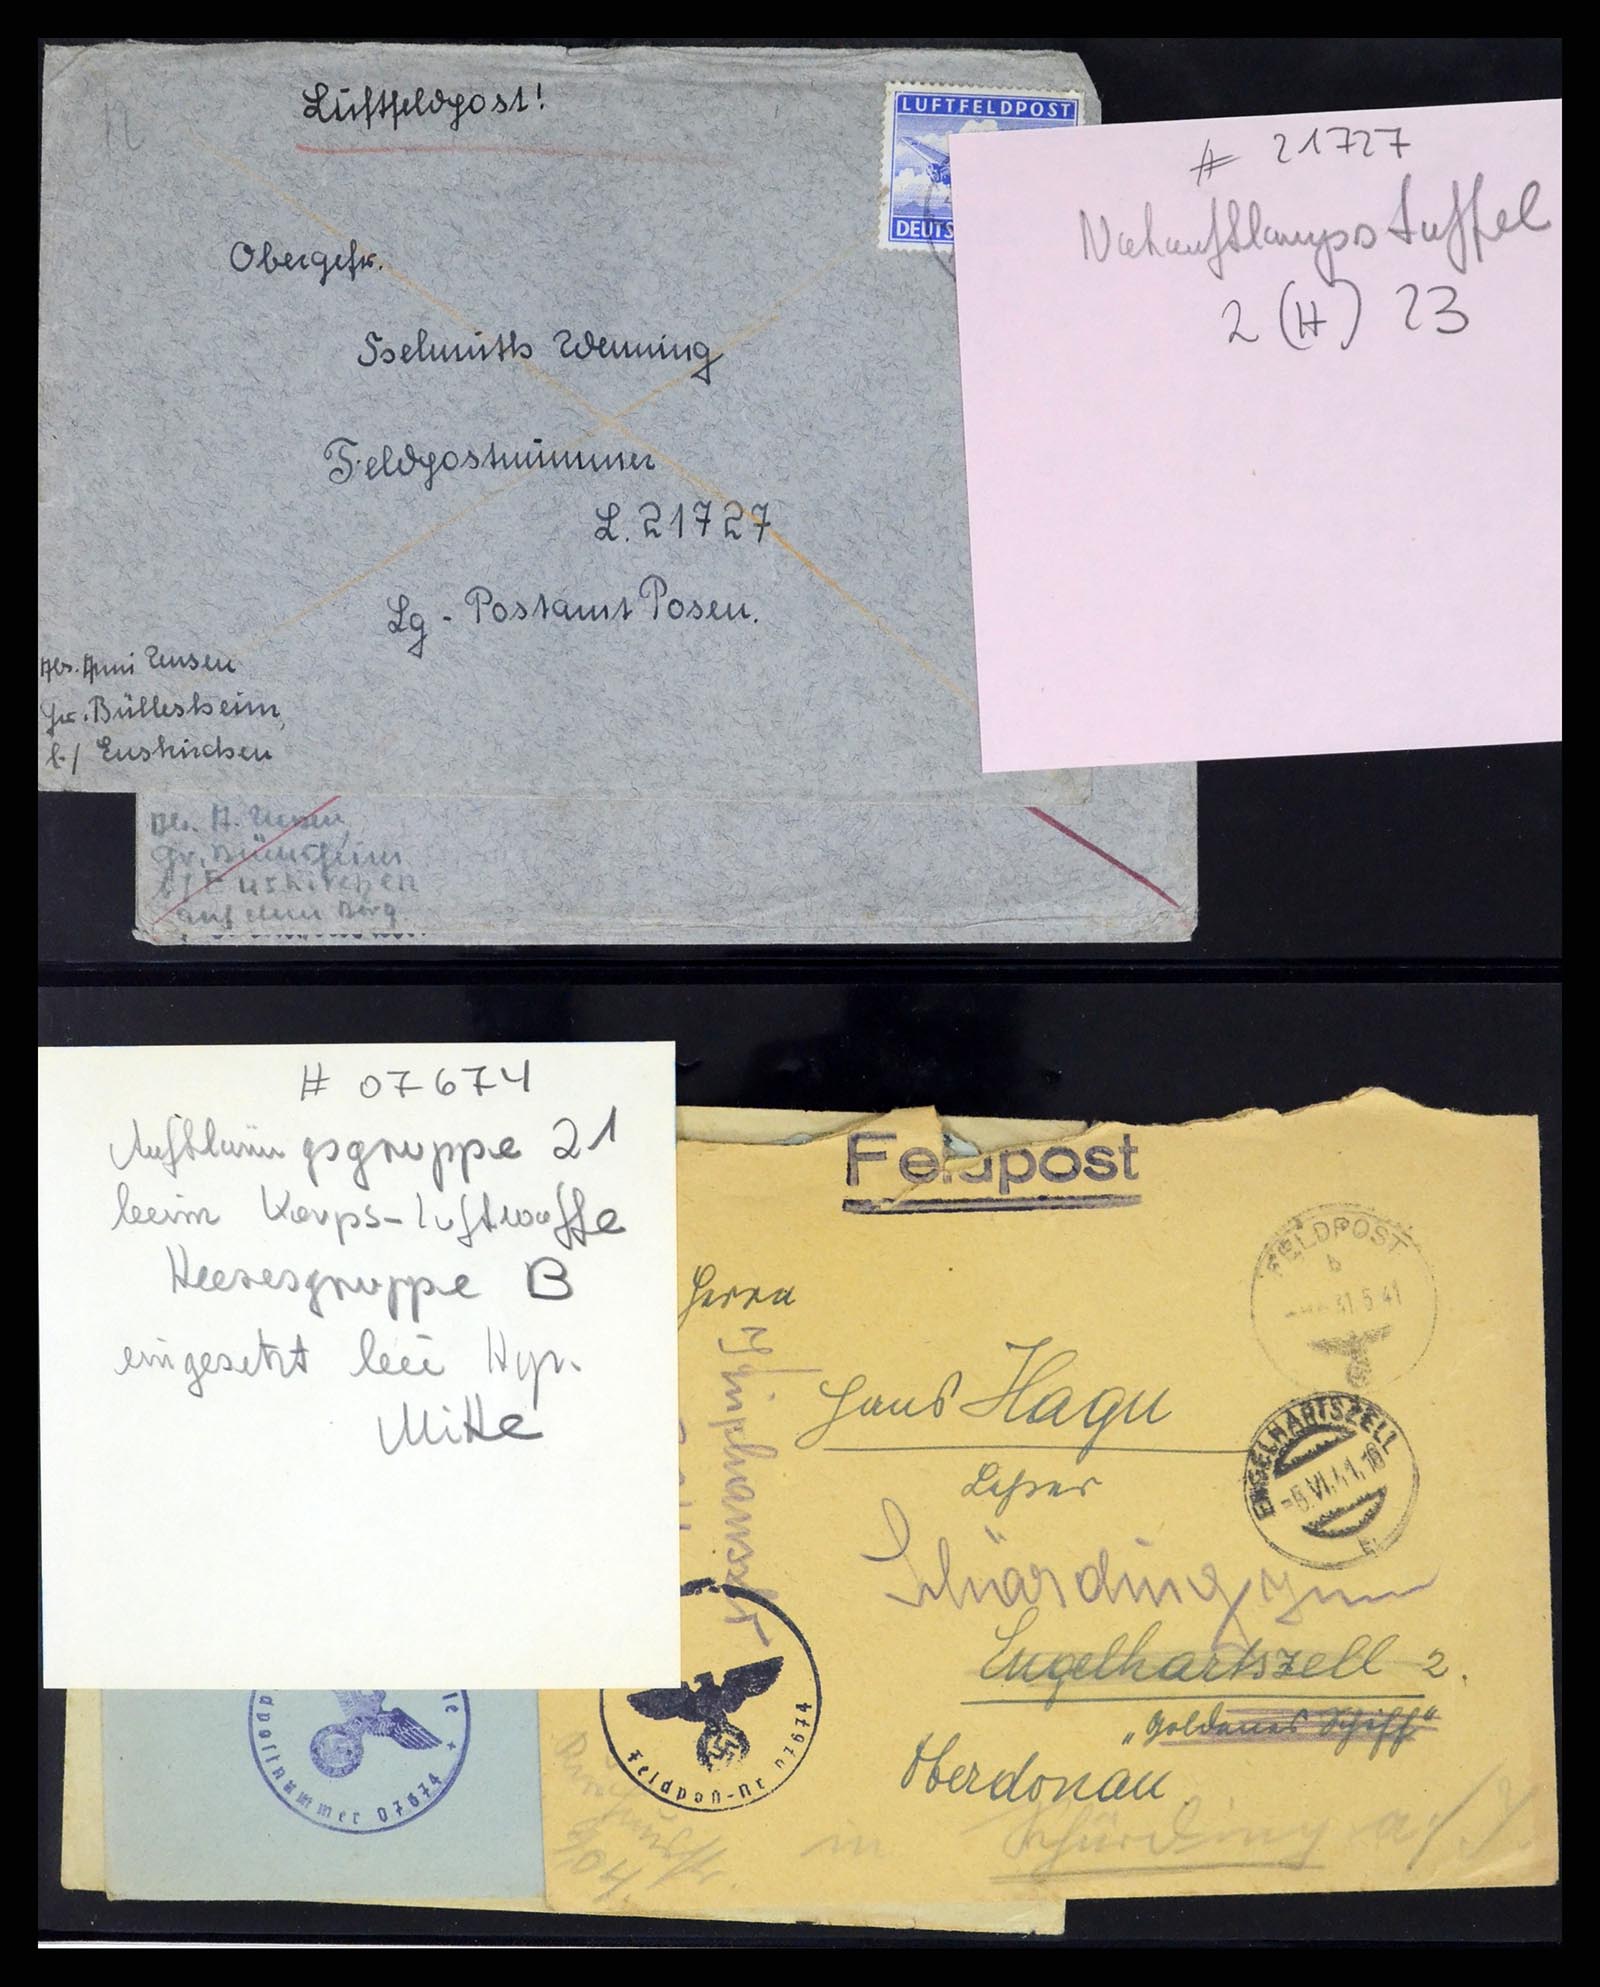 Luftfeldpost!
LUFTFELDPOST
DEUTS
Obergefr.
Helmuth Wenning
Feldpostnummer
L. 21727
Lg - Postamt Posen.
Abs. Anni
Gr. Büllesheim
b/ Euskirchen
# 21727
Nahaufklärungsstaffel
2 (H) 23
Abs. A.
Gr. Büllesheim
b/ Euskirchen
auf dem Berg
# 07674
Aufklärungsgruppe 21
beim Korps-Luftwaffe
Heeresgruppe B
eingesetzt bei Hgr.
Mitte
Feldpost
FELDPOST
b
31.5.41
Herrn
Hans Hager
Lehrer
ENGELHARTSZELL
-6.VI.41.16
Schärding
Engelhartszell 2.
„Goldenes Schiff“
Oberdonau.
in Schärding a/I
Feldpost-Nr 07674
Feldpostnummer 07674